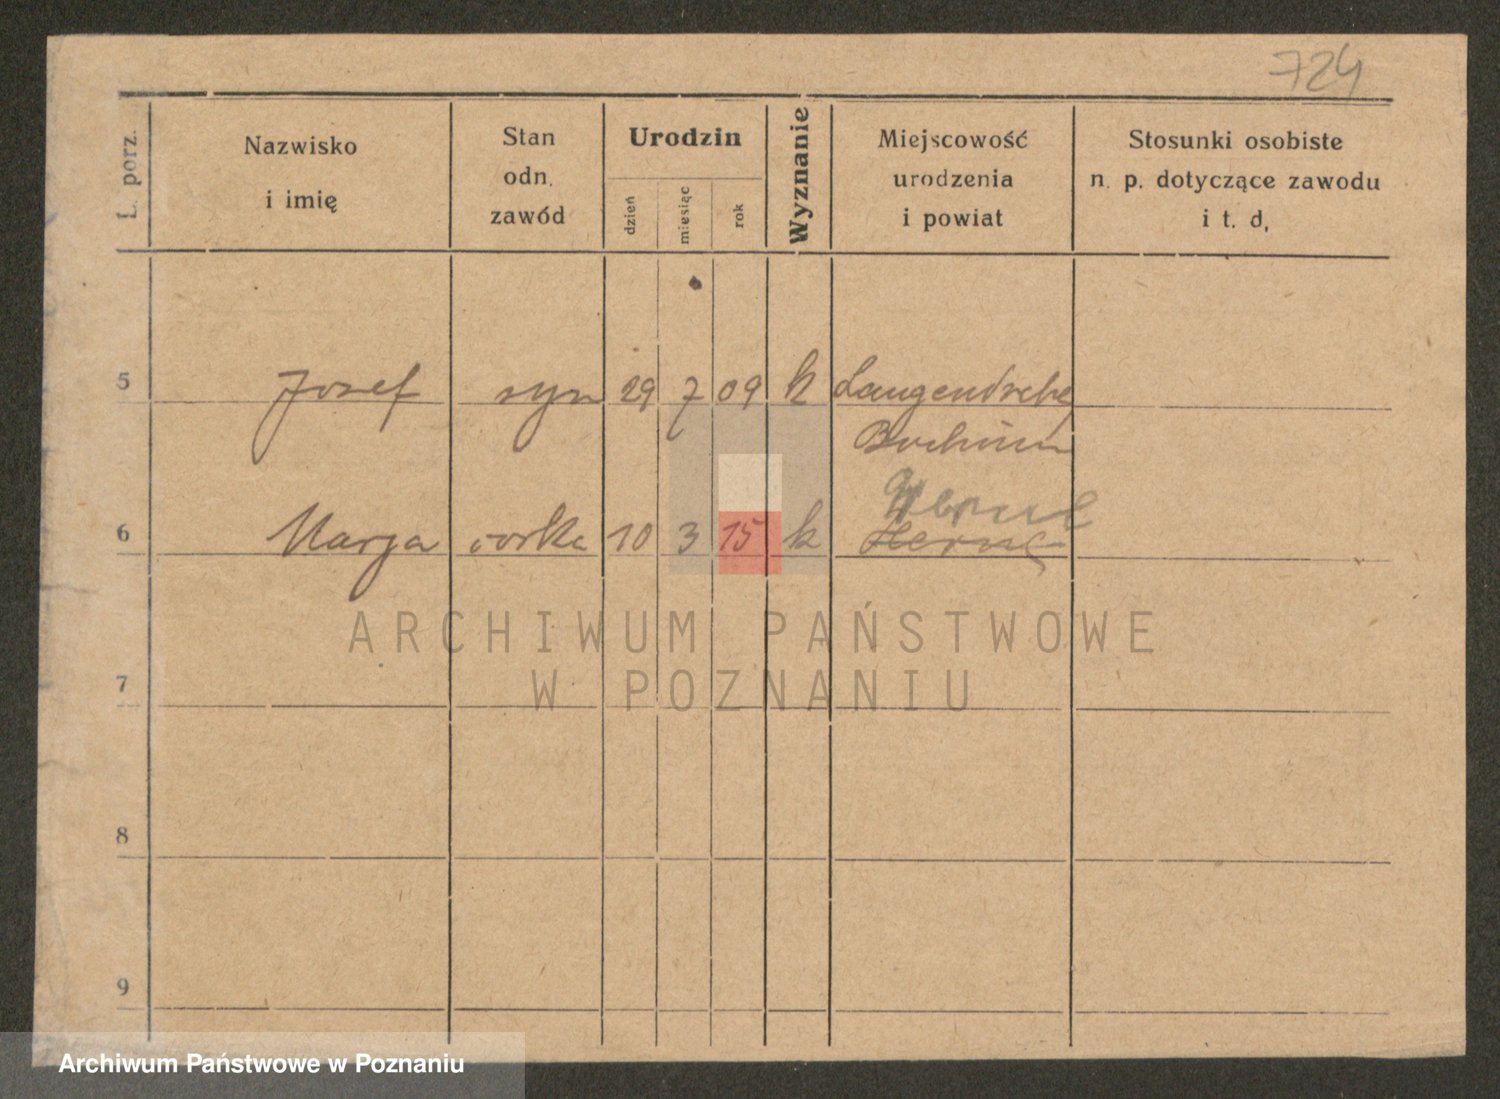 724
L. porz.
Nazwisko
i imię
Stan
odn.
zawód
Urodzin
dzień
miesiąc
rok
Wyznanie
Miejscowość
urodzenia
i powiat
Stosunki osobiste
n. p. dotyczące zawodu
i t. d,
5 Jozef syn 29 7 09 k
6 Marja corka 10 3 15 k Herne
7
8
9
ARCHIWUM PAŃSTWOWE
W POZNANIU
Archiwum Państwowe w Poznaniu